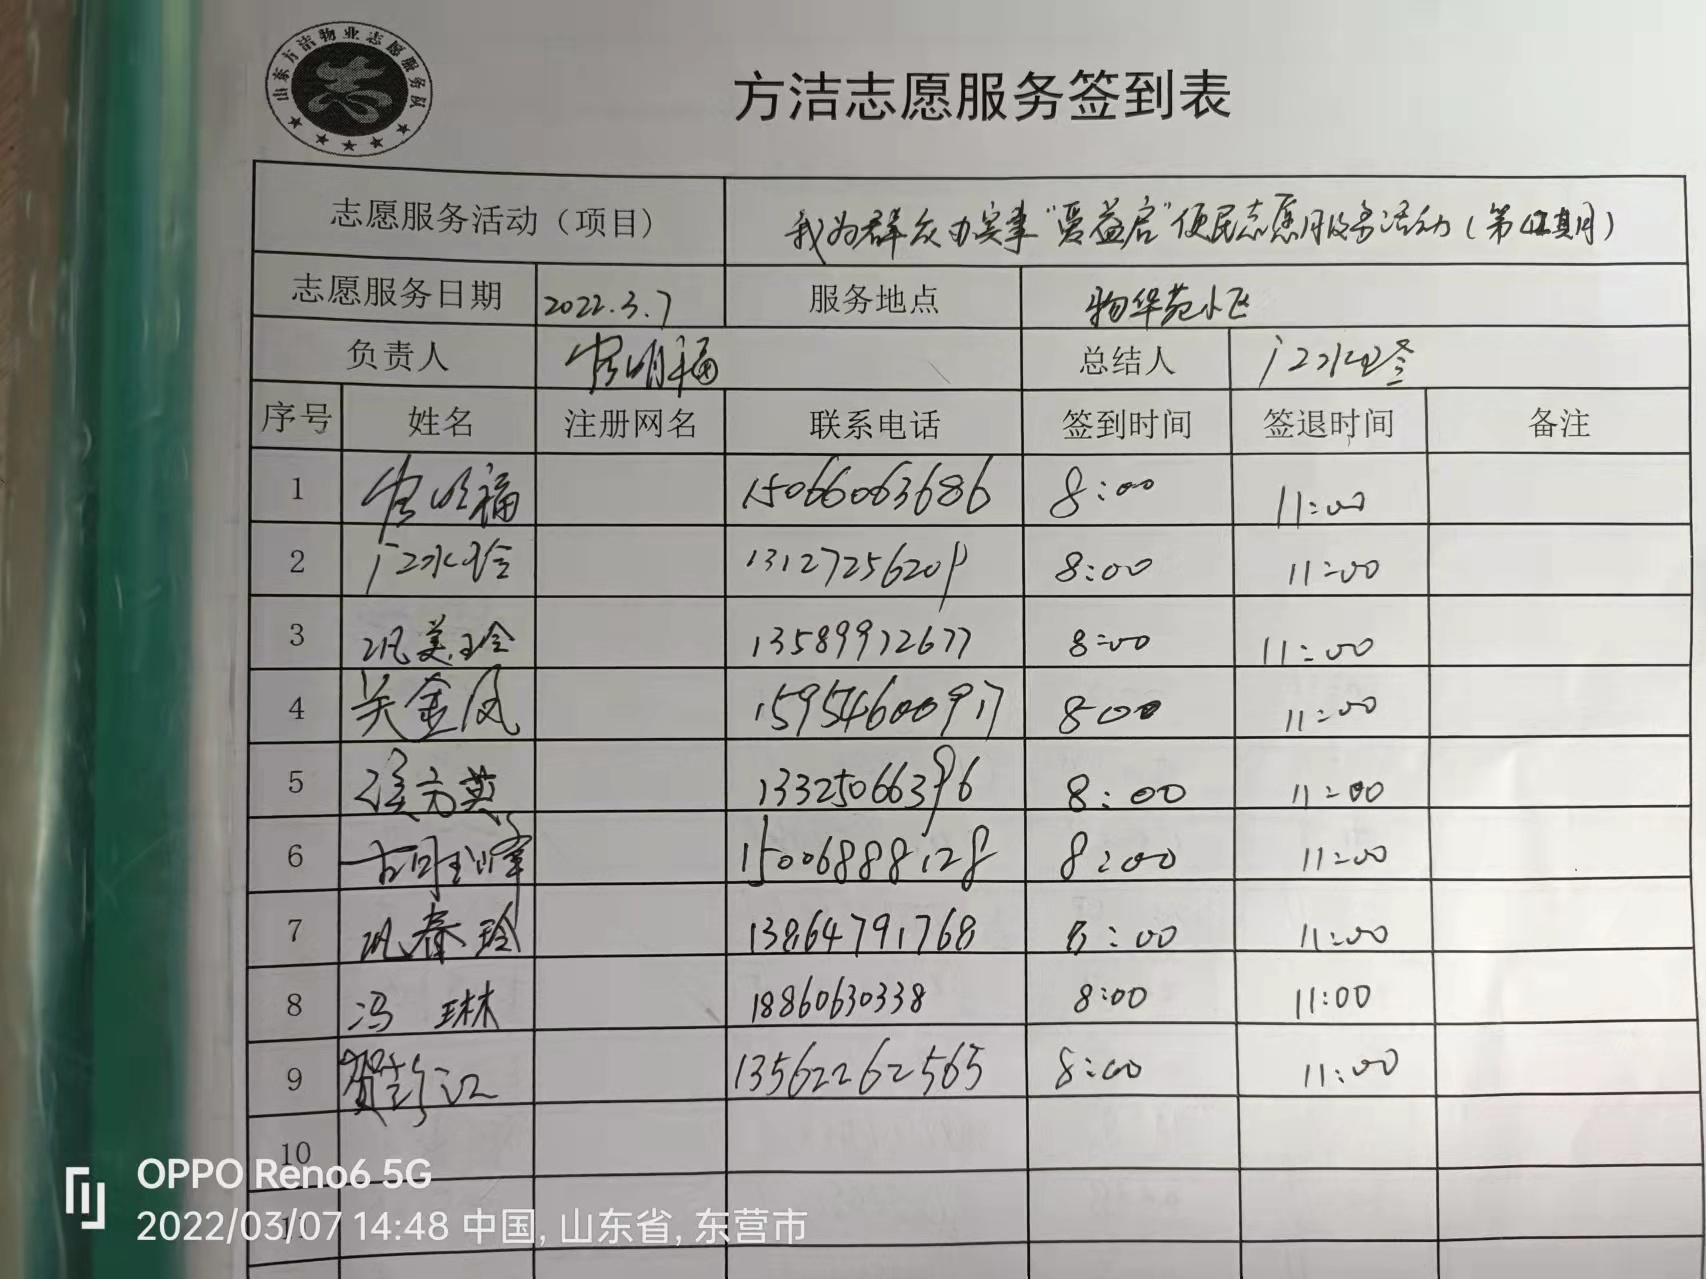 山东方洁物业志愿服务队
志
方洁志愿服务签到表
志愿服务活动（项目） 我为群众办实事“爱益启”便民志愿服务活动（第 期）
志愿服务日期 2022.3.7 服务地点 物华苑小区
负责人 明福 总结人
序号 姓名 注册网名 联系电话 签到时间 签退时间 备注
1 明福 15066063686 8:00 11:00
2 1312725620 8:00 11:00
3 巩美玲 13589912677 8:00 11:00
4 关金凤 15954600917 8 00 11:00
5 13325066396 8:00 11:00
6 15006888128 8:00 11:00
7 巩春玲 13864791768 8:00 11:00
8 冯 琳 18860630338 8:00 11:00
9 贺 江 13562262565 8:00 11:00
10
11
OPPO Reno6 5G
2022/03/07 14:48 中国, 山东省, 东营市